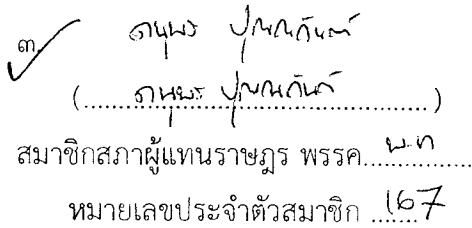 ๓. ดนุพร ปุณณกันต์
(ดนุพร ปุณณกันต์)
สมาชิกสภาผู้แทนราษฎร พรรค พ.ท
หมายเลขประจำตัวสมาชิก 167